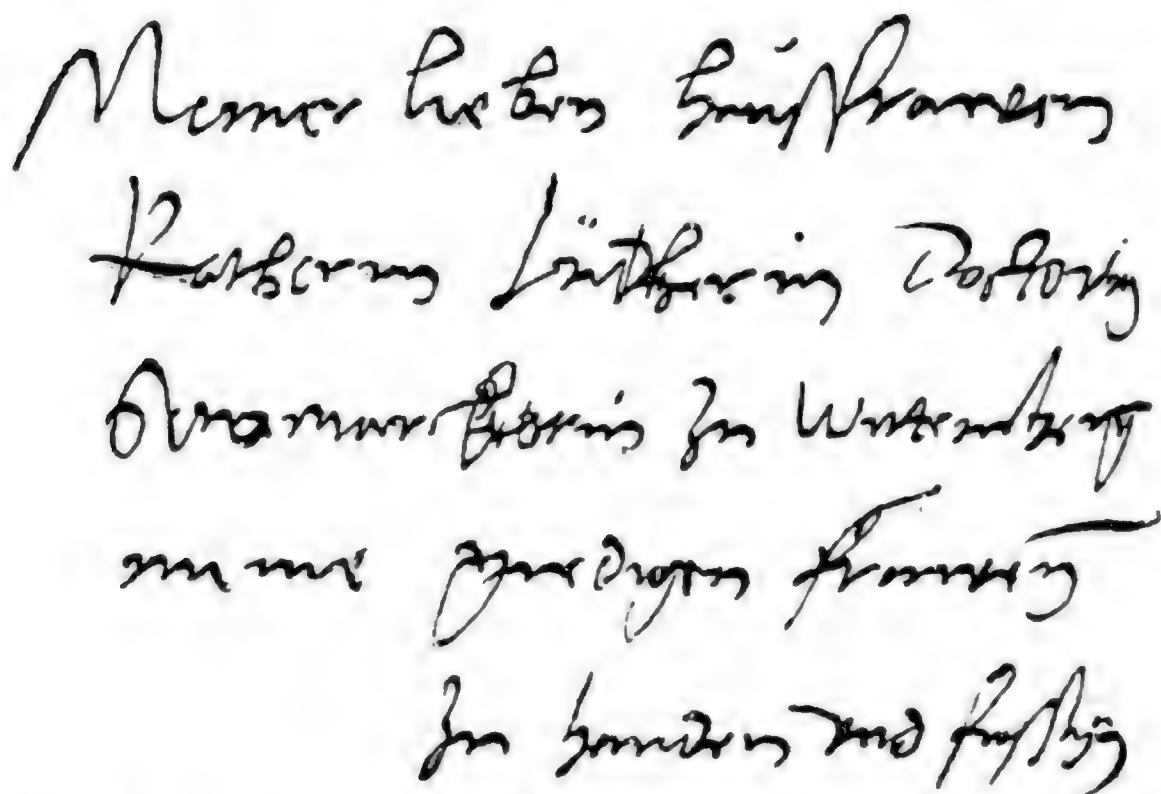 Meiner lieben hausfrawen
Katherin Lutherin Doctorin
Sewmarckterin zu Wittemberg
meine gnedigen frawen
zu handen vnd fussen